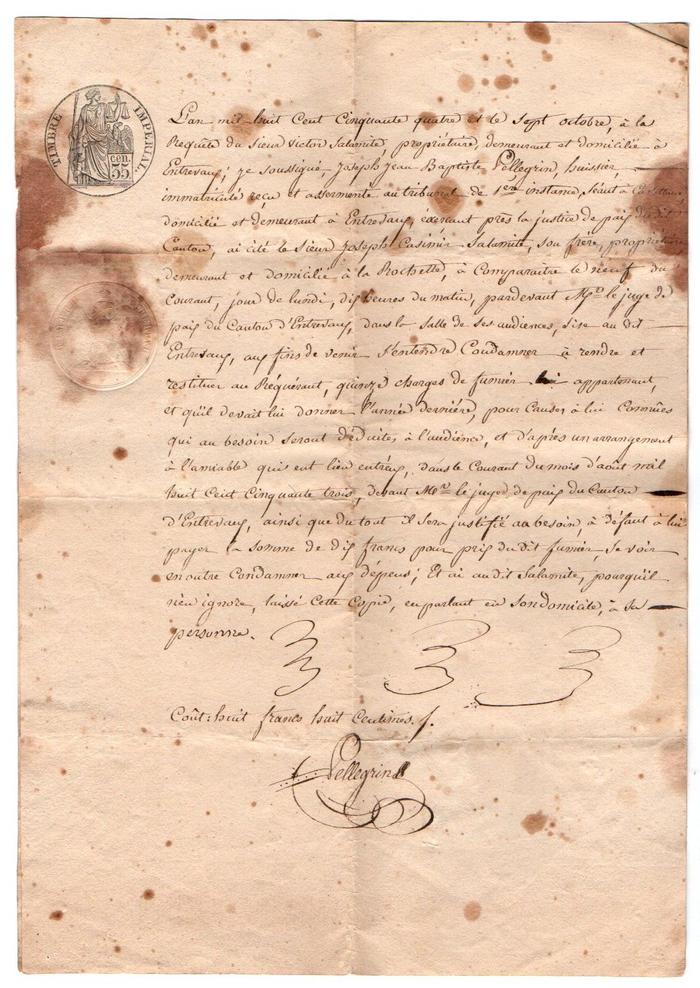 TIMBRE IMPERIAL.
55 cen.
L'an mil huit Cent Cinquante quatre et le Sept octobre, à la
Requête du Sieur Victor Salamite, propriétaire, demeurant et domicilié à
Entrevaux; je soussigné, Joseph Jean Baptiste Pellegrin, huissier,
immatriculé reçu et assermenté au tribunal de 1ere instance, Séant à
domicilié et demeurant à Entrevaux, exerçant près la justice de paix du dit
Canton, ai cité le Sieur Joseph Casimir Salamite, son frère, propriétaire
demeurant et domicilié à la Rochette, à Comparaitre le neuf du
Courant, jour de lundi, dix heures du matin, pardevant Mr. le juge de
paix du Canton d'Entrevaux, dans la Salle de Ses audiences, Sise au dit
Entrevaux, aux fins de venir S'entendre Condamner à rendre et
restituer au Réquérant, quinze charges de fumier lui appartenant,
et qu'il devait lui donner l'année dernière, pour Causes à lui Connües
qui au besoin Seront déduites à l'audience, et d'après un arrangement
à l'amiable qui eut lieu entr'eux, dans le Courant du mois d'août mil
huit Cent Cinquante trois, devant Mr. le juge de paix du Canton
d'Entrevaux, ainsi que du tout il Sera justifié au besoin, à défaut à lui
payer la Somme de dix francs pour prix du dit fumier, Se voir
en outre Condamner aux dépens; Et ai au dit Salamite, pourqu'il
n'en ignore, laissé Cette Copie, en parlant en Son domicile, à Sa
personne.
Coût: huit francs huit Centimes.
Pellegrin